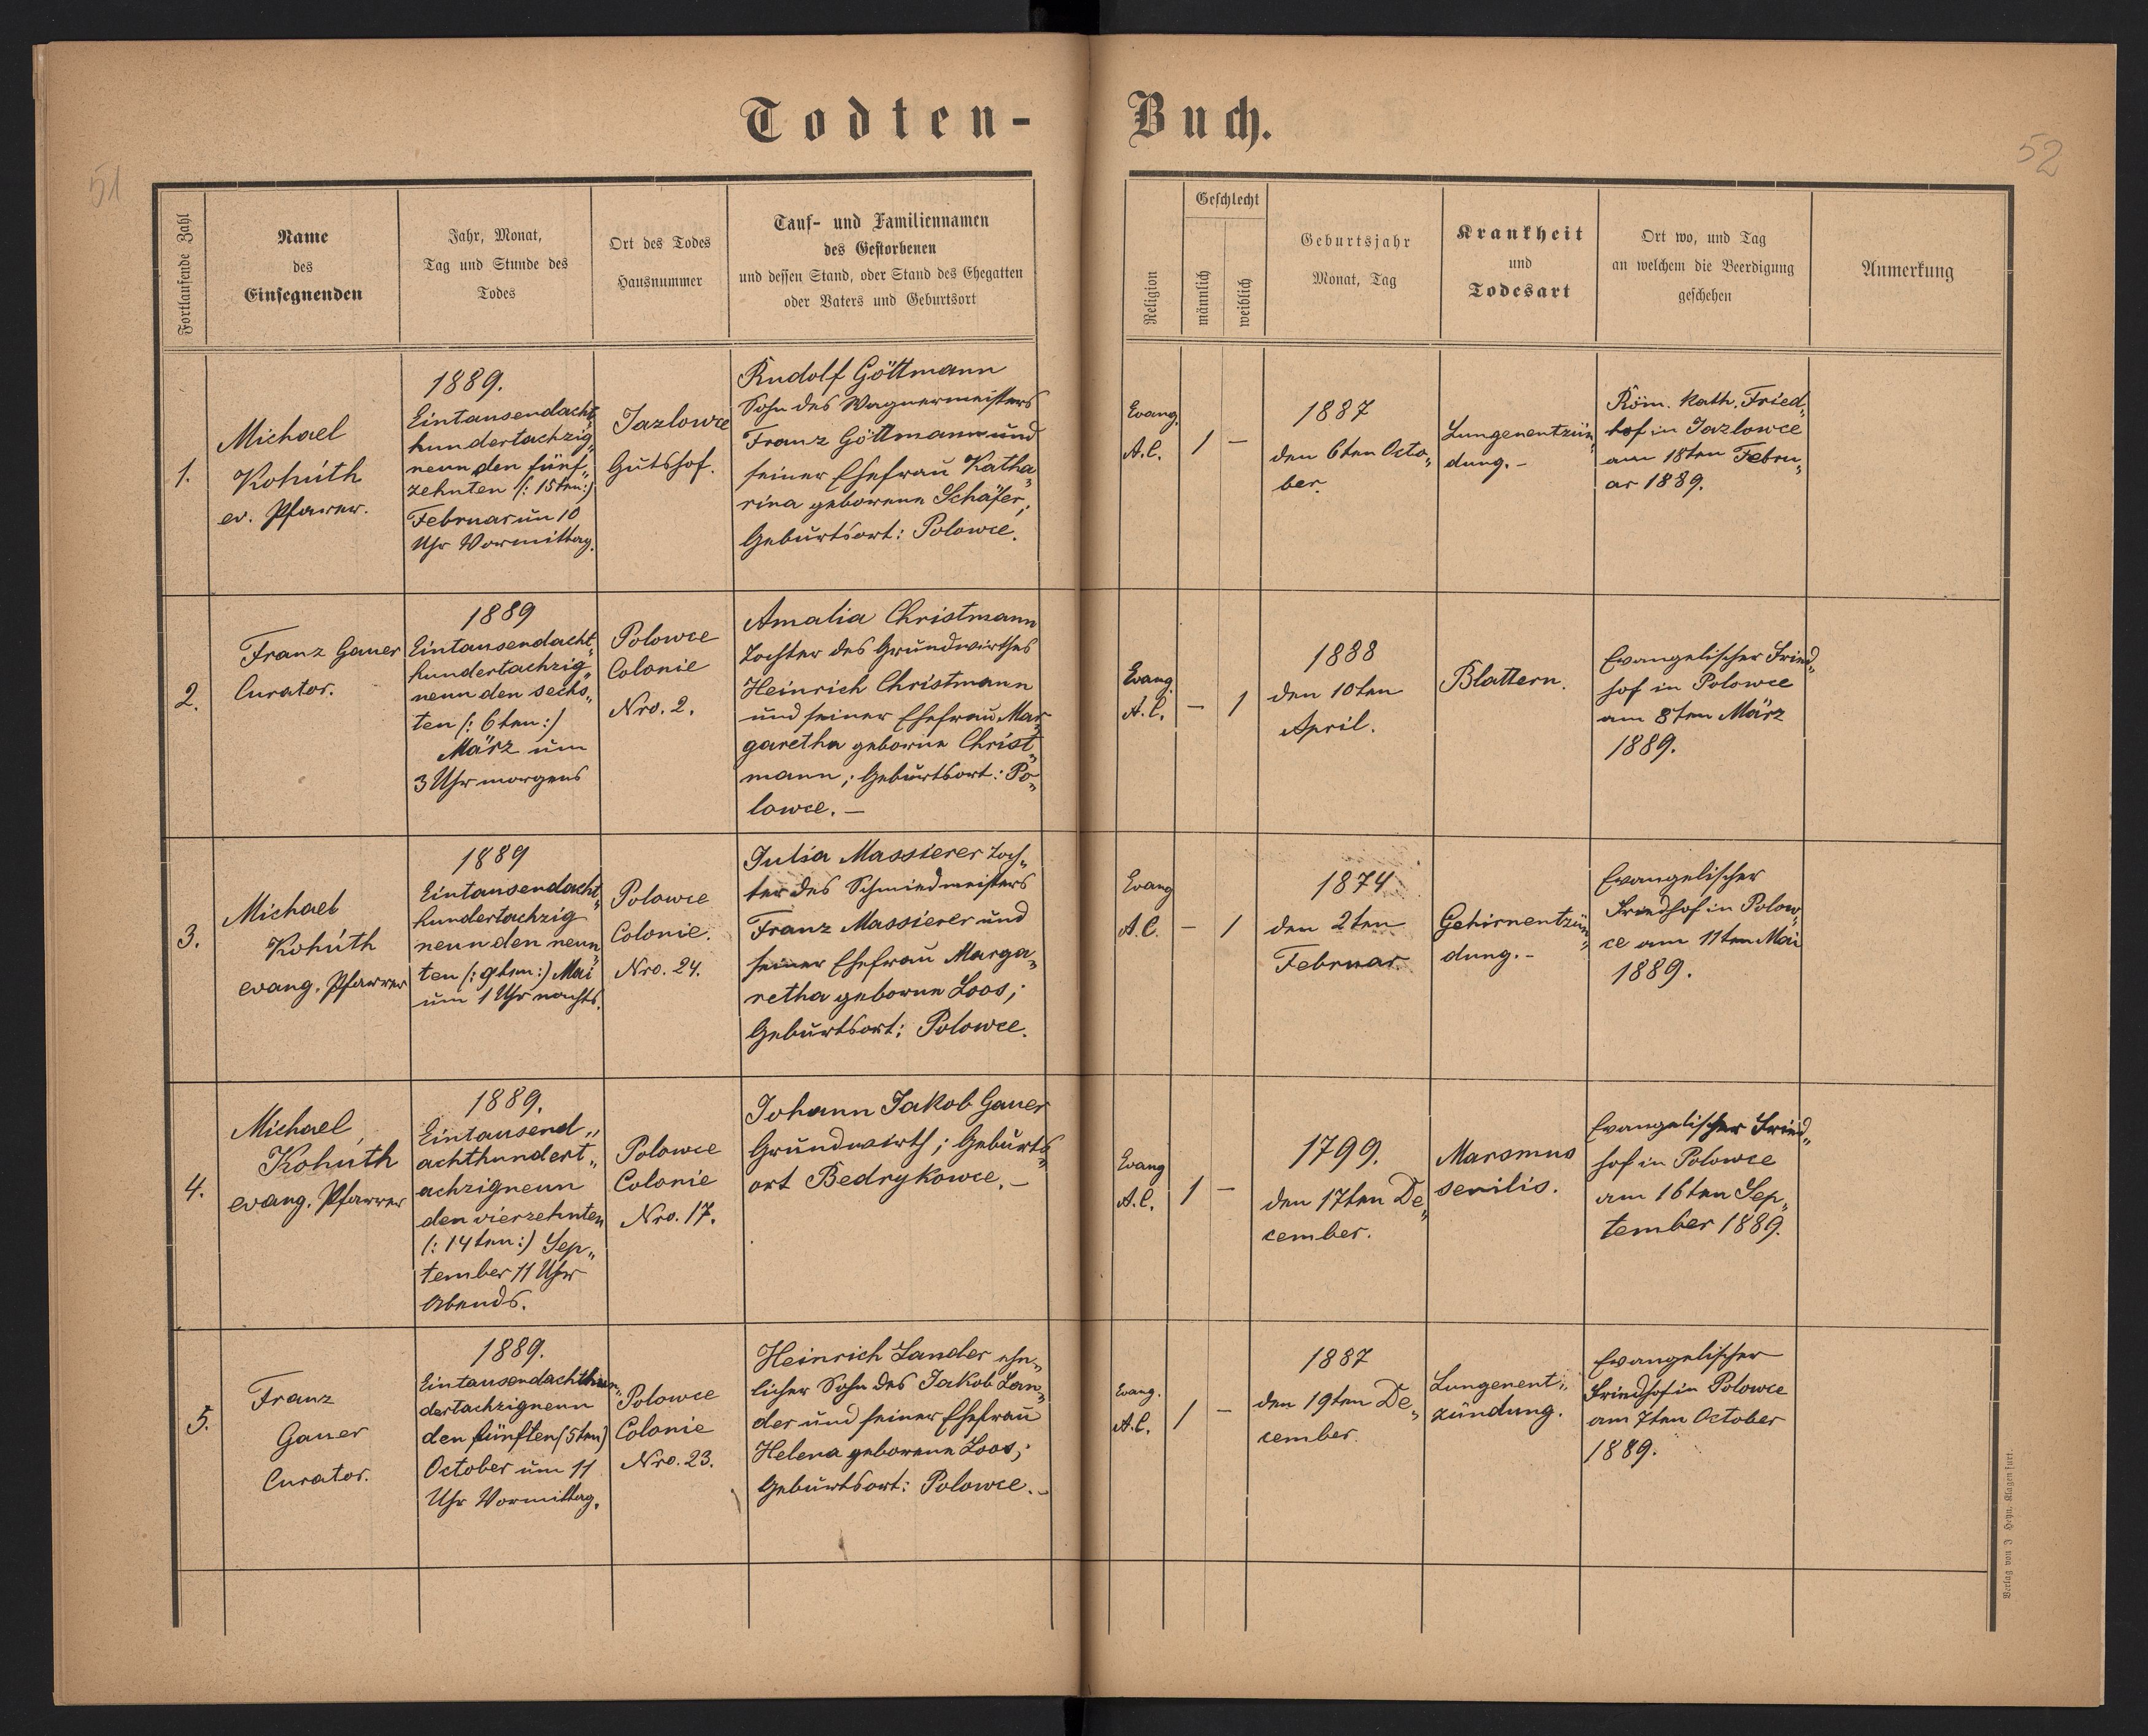 51
52
Todten-Buch.
Fortlaufende Zahl
Name
des
Einsegnenden
Jahr, Monat,
Tag und Stunde des
Todes
Ort des Todes
Hausnummer
Tauf- und Familiennamen
des Gestorbenen
und dessen Stand, oder Stand des Ehegatten
oder Vaters und Geburtsort
Religion
Geschlecht
männlich
weiblich
Geburtsjahr
Monat, Tag
Krankheit
und
Todesart
Ort wo, und Tag
an welchem die Beerdigung
geschehen
Anmerkung
1.
Michael
Kohúth
ev. Pfarrer.
1889.
Eintausendacht„
hundertachzig„
neun den fünf„
zehnten (: 15ten :)
Februar um 10
Uhr Vormittag.
Jazlowce
Gutshof.
Rudolf Göttmann
Sohn des Wagnermeisters
Franz Göttmann und
seiner Ehefrau Katha„
rina geborene Schäfer,
Geburtsort: Polowce.
Evang.
A.C.
1
—
1887
den 6ten Octo„
ber.
Lungenentzün„
dung. -
Röm. Kath. Fried„
hof in Jazlowce
am 18ten Febru„
ar 1889.
2.
Franz Gauer
Curator.
1889
Eintausendacht„
hundertachzig„
neun den sechs„
ten (: 6ten :)
März um
3 Uhr morgens
Polowce
Colonie
Nro. 2.
Amalia Christmann
Tochter des Grundwirthes
Heinrich Christmann
und seiner Ehefrau Mar„
garetha geborne Christ„
mann; Geburtsort: Po„
lowce. —
Evang.
A.C.
—
1
1888
den 10ten
April.
Blattern.
Evangelischer Fried„
hof in Polowce
am 8ten März
1889.
3.
Michael
Kohúth
evang. Pfarrer
1889
Eintausendacht„
hundertachzig
neun den neun„
ten (: 9ten :) Mai
um 1 Uhr nachts.
Polowce
Colonie.
Nro. 24.
Julia Massierer Toch„
ter des Schmiedmeisters
Franz Massierer und
seiner Ehefrau Marga„
retha geborne Loos;
Geburtsort: Polowce.
Evang
A.C.
—
1
1874
den 2ten
Februar.
Gehirnentzün„
dung. -
Evangelischer
Friedhof in Polow„
ce am 11ten Mai
1889.
4.
Michael
Kohúth
evang. Pfarrer
1889.
Eintausend„
achthundert„
achzigneun
den vierzehnten
(: 14ten :) Sep„
tember 11 Uhr
Abends.
Polowce
Colonie
Nro. 17.
Johann Jakob Gauer
Grundwirth; Geburts„
ort Bedrykowce. —
Evang
A.C.
1
—
1799.
den 17ten De„
cember.
Marsmus
senilis.
Evangelischer Fried„
hof in Polowce
am 16ten Sep„
tember 1889.
5.
Franz
Gauer
Curator.
1889.
Eintausendachthun„
dertachzigneun
den fünften (5ten)
October um 11
Uhr Vormittag.
Polowce
Colonie
Nro. 23.
Heinrich Lander ehe„
licher Sohn des Jakob Lan„
der und seiner Ehefrau
Helena geborene Loos;
Geburtsort: Polowce. -
Evang.
A.C.
1
—
1887
den 19ten De„
cember.
Lungenent„
zündung.
Evangelischer
Friedhof in Polowce
am 7ten October
1889.
Verlag von J Heyn, Klagenfurt.